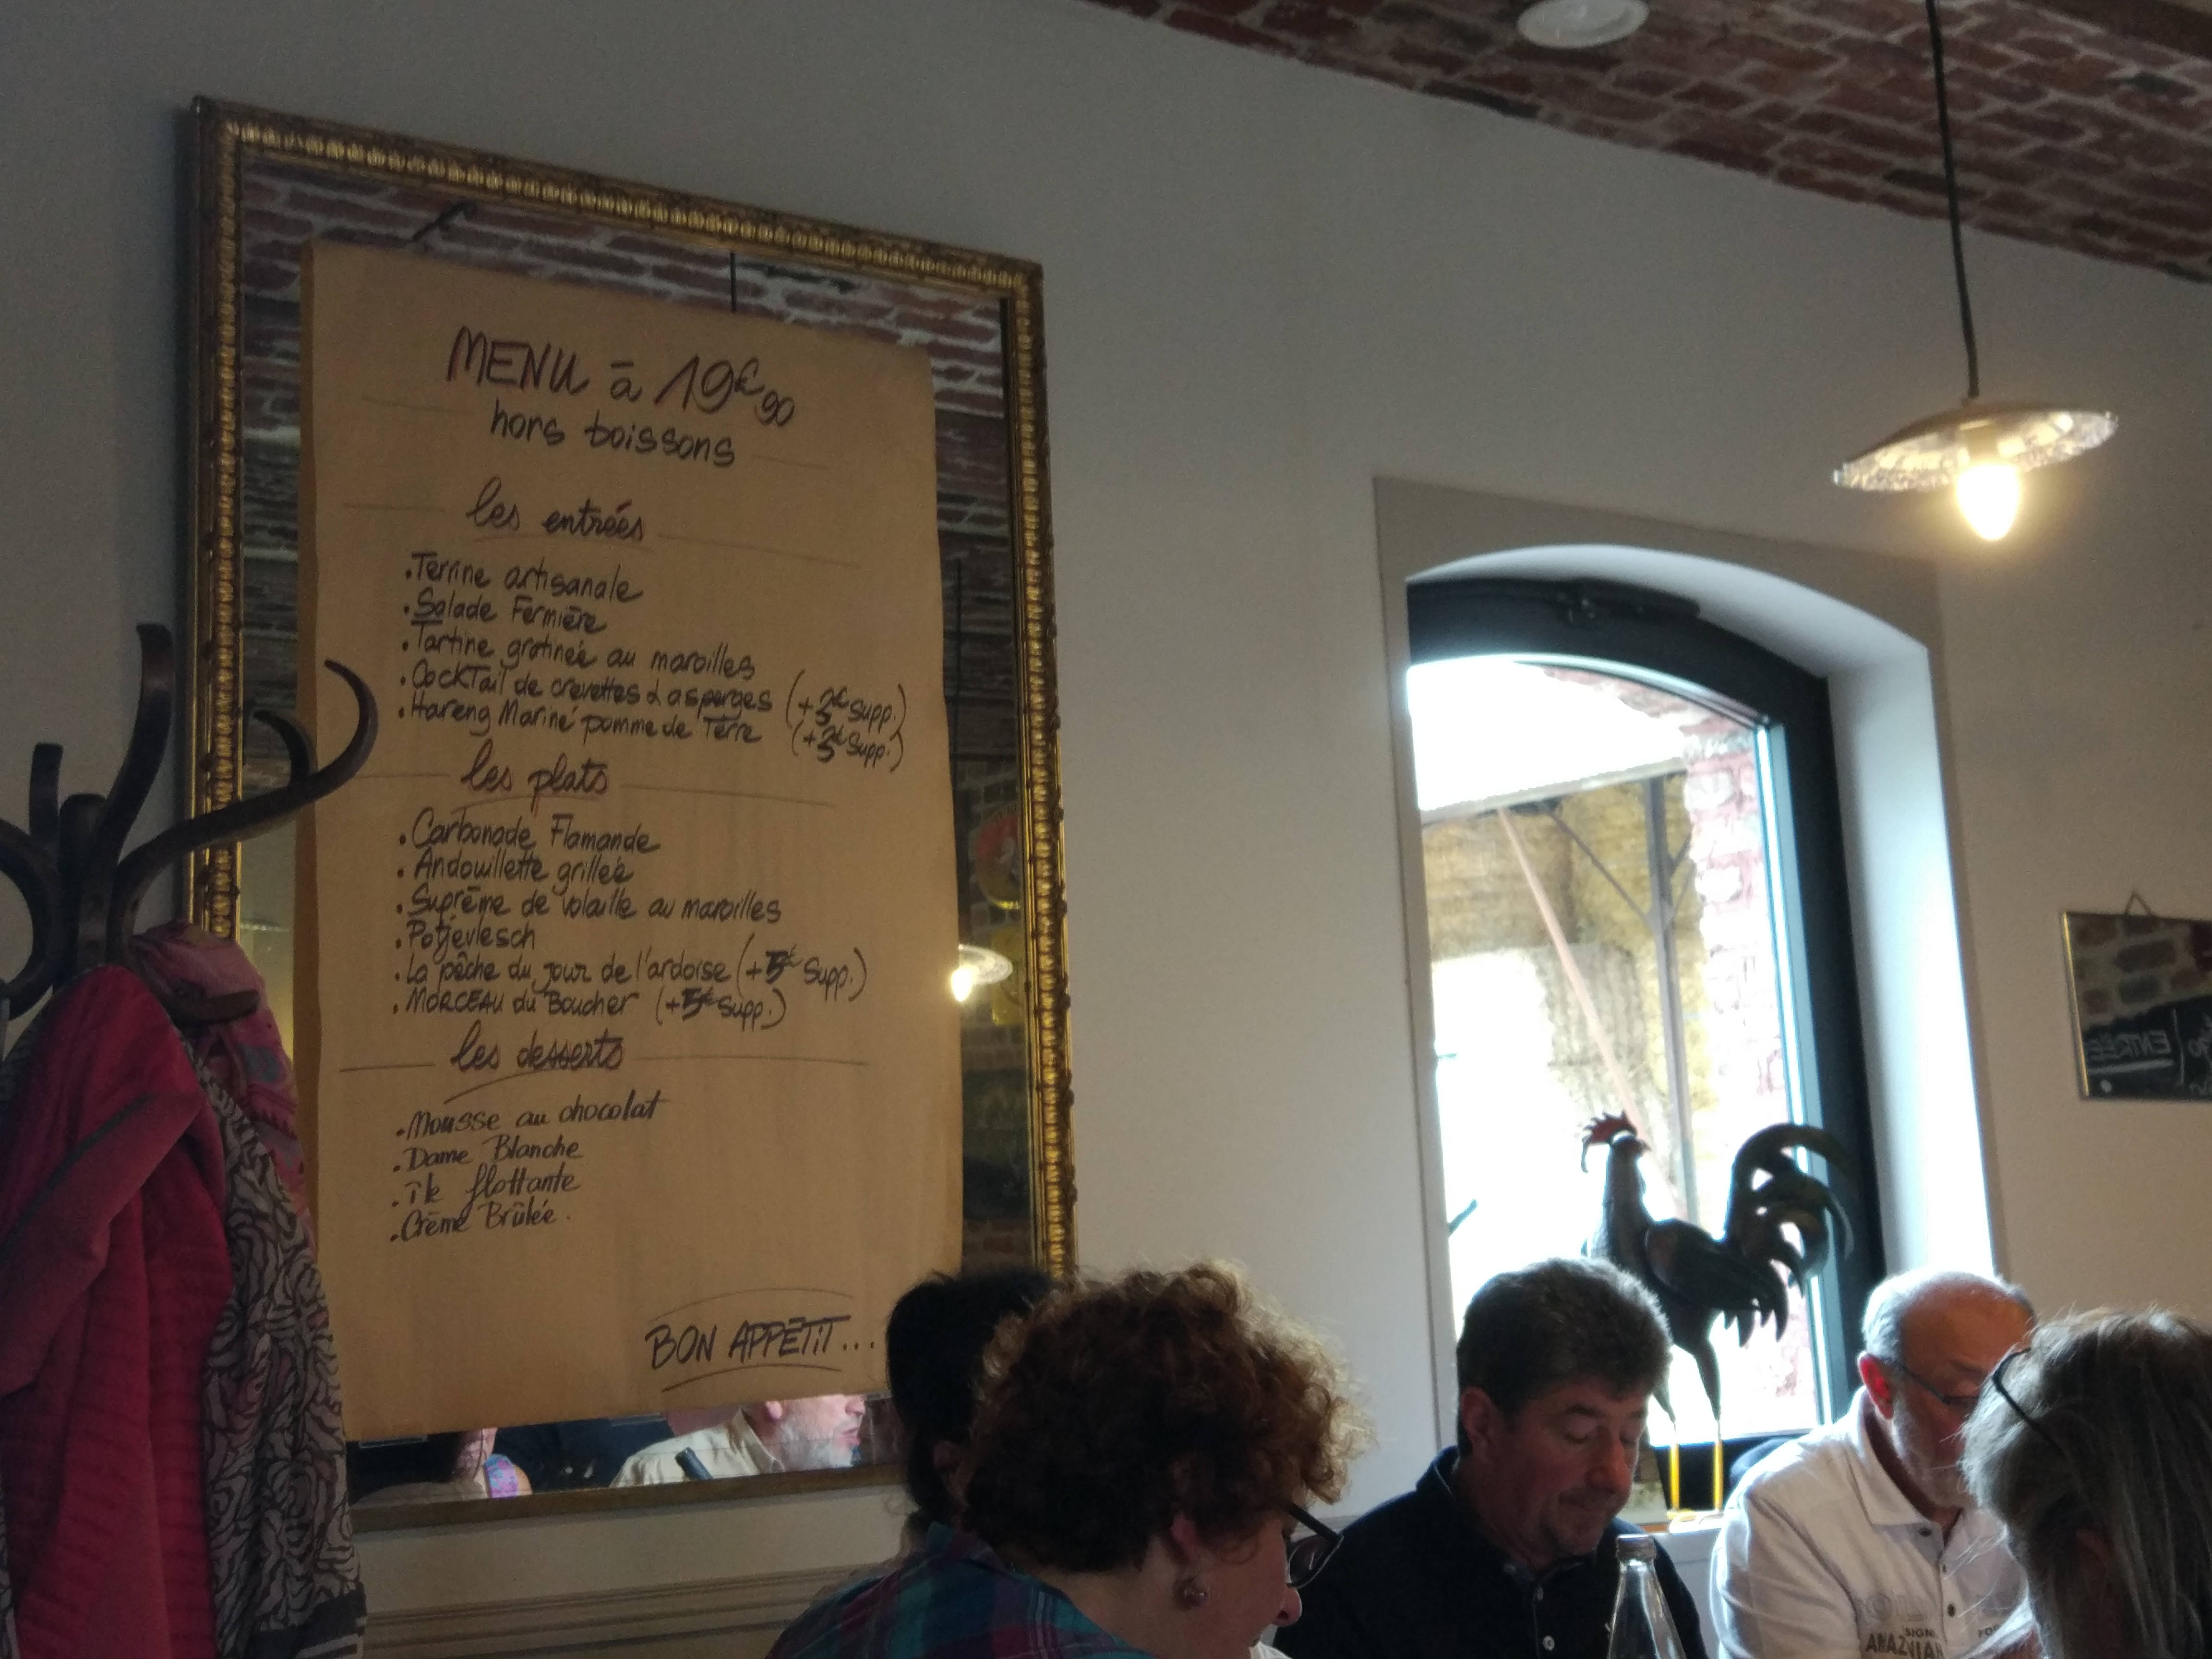 MENU à 19€90
hors boissons
les entrées
.Terrine artisanale
.Salade Fermière
.Tartine gratinée au maroilles
.Cocktail de crevettes & asperges (+3€ Supp.)
.Hareng Mariné pomme de Terre (+3€ Supp.)
les plats
.Carbonade Flamande
.Andouillette grillée
.Suprême de volaille au maroilles
.Potjevlesch
.La pêche du jour de l'ardoise (+5€ Supp.)
.MORCEAU du Boucher (+5€ Supp.)
les desserts
.Mousse au chocolat
.Dame Blanche
.île flottante
.Crème Brûlée.
BON APPÉTIT...
ENTRÉE
SIGN